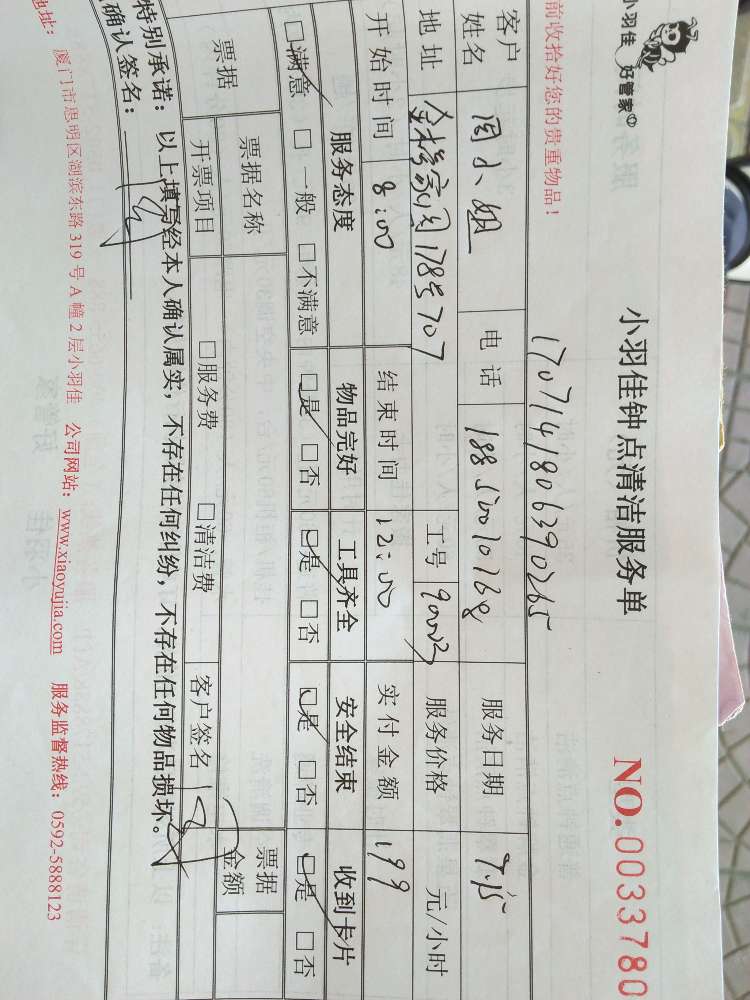 小羽佳 好管家
小羽佳钟点清洁服务单
NO.0033780
前收拾好您的贵重物品!
1707141806390265
客户姓名 周小姐 电话 18850010768 服务日期 7.15
地址 1785707 工号 90003 服务价格 元/小时
开始时间 8:00 结束时间 12:00 实付金额 199
服务态度 物品完好 工具齐全 安全结束 收到卡片
□满意 □一般 □不满意 □是 □否 □是 □否 □是 □否 □是 □否
票据 票据名称 票据金额
开票项目 □服务费 □清洁费 客户签名
特别承诺:以上填写经本人确认属实,不存在任何纠纷,不存在任何物品损坏。
确认签名:
地址: 厦门市思明区湖滨东路 319 号 A 幢 2 层小羽佳 公司网站:www.xiaoyujia.com 服务监督热线:0592-5888123